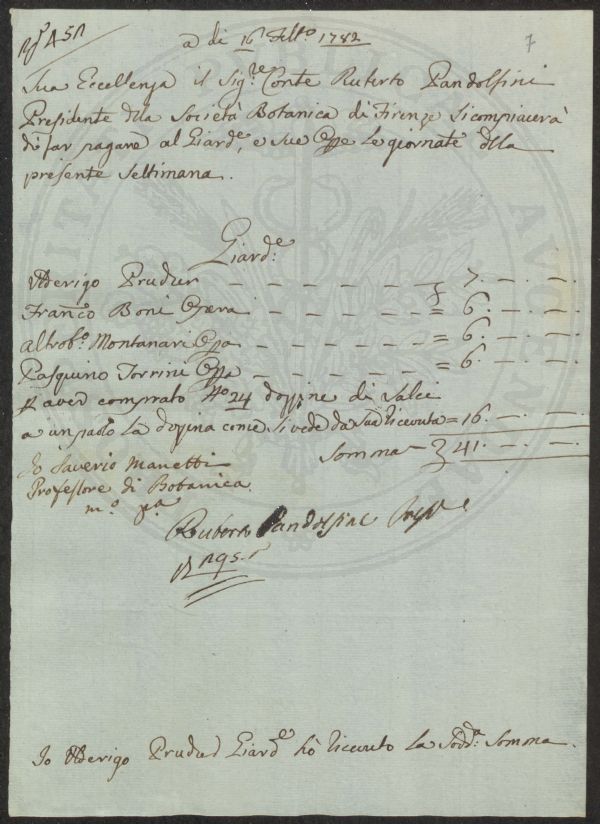 a di 16 Febb.º 1782
7
Sua Eccellenza il Sig.re Conte Ruberto Pandolfini
Presidente della Società Botanica di Firenze si compiacerà
di far pagare al Giard.e, e sue Opре le giornate della
presente settimana.
Giard.e
Uderigo Prucker — — — — — — 7. — . —
Franc.º Boni Opera — — — — — = 6. — . —
altro Montanari Opra — — — — — = 6. — . —
Pasquino Torrini Opra — — — — — = 6. — . —
P aver comprato Nº 24 dozzine di Salci
a un paolo la dozina come si vede da sua ricevuta = 16. — . —
Somma — 41. — . —
Io Saverio Manetti
Professore di Botanica
m.º p.a
Ruberto Pandolfini Presid.e
Io Uderigo Prucker Giard.e hò ricevuto la Sodd.a Somma.